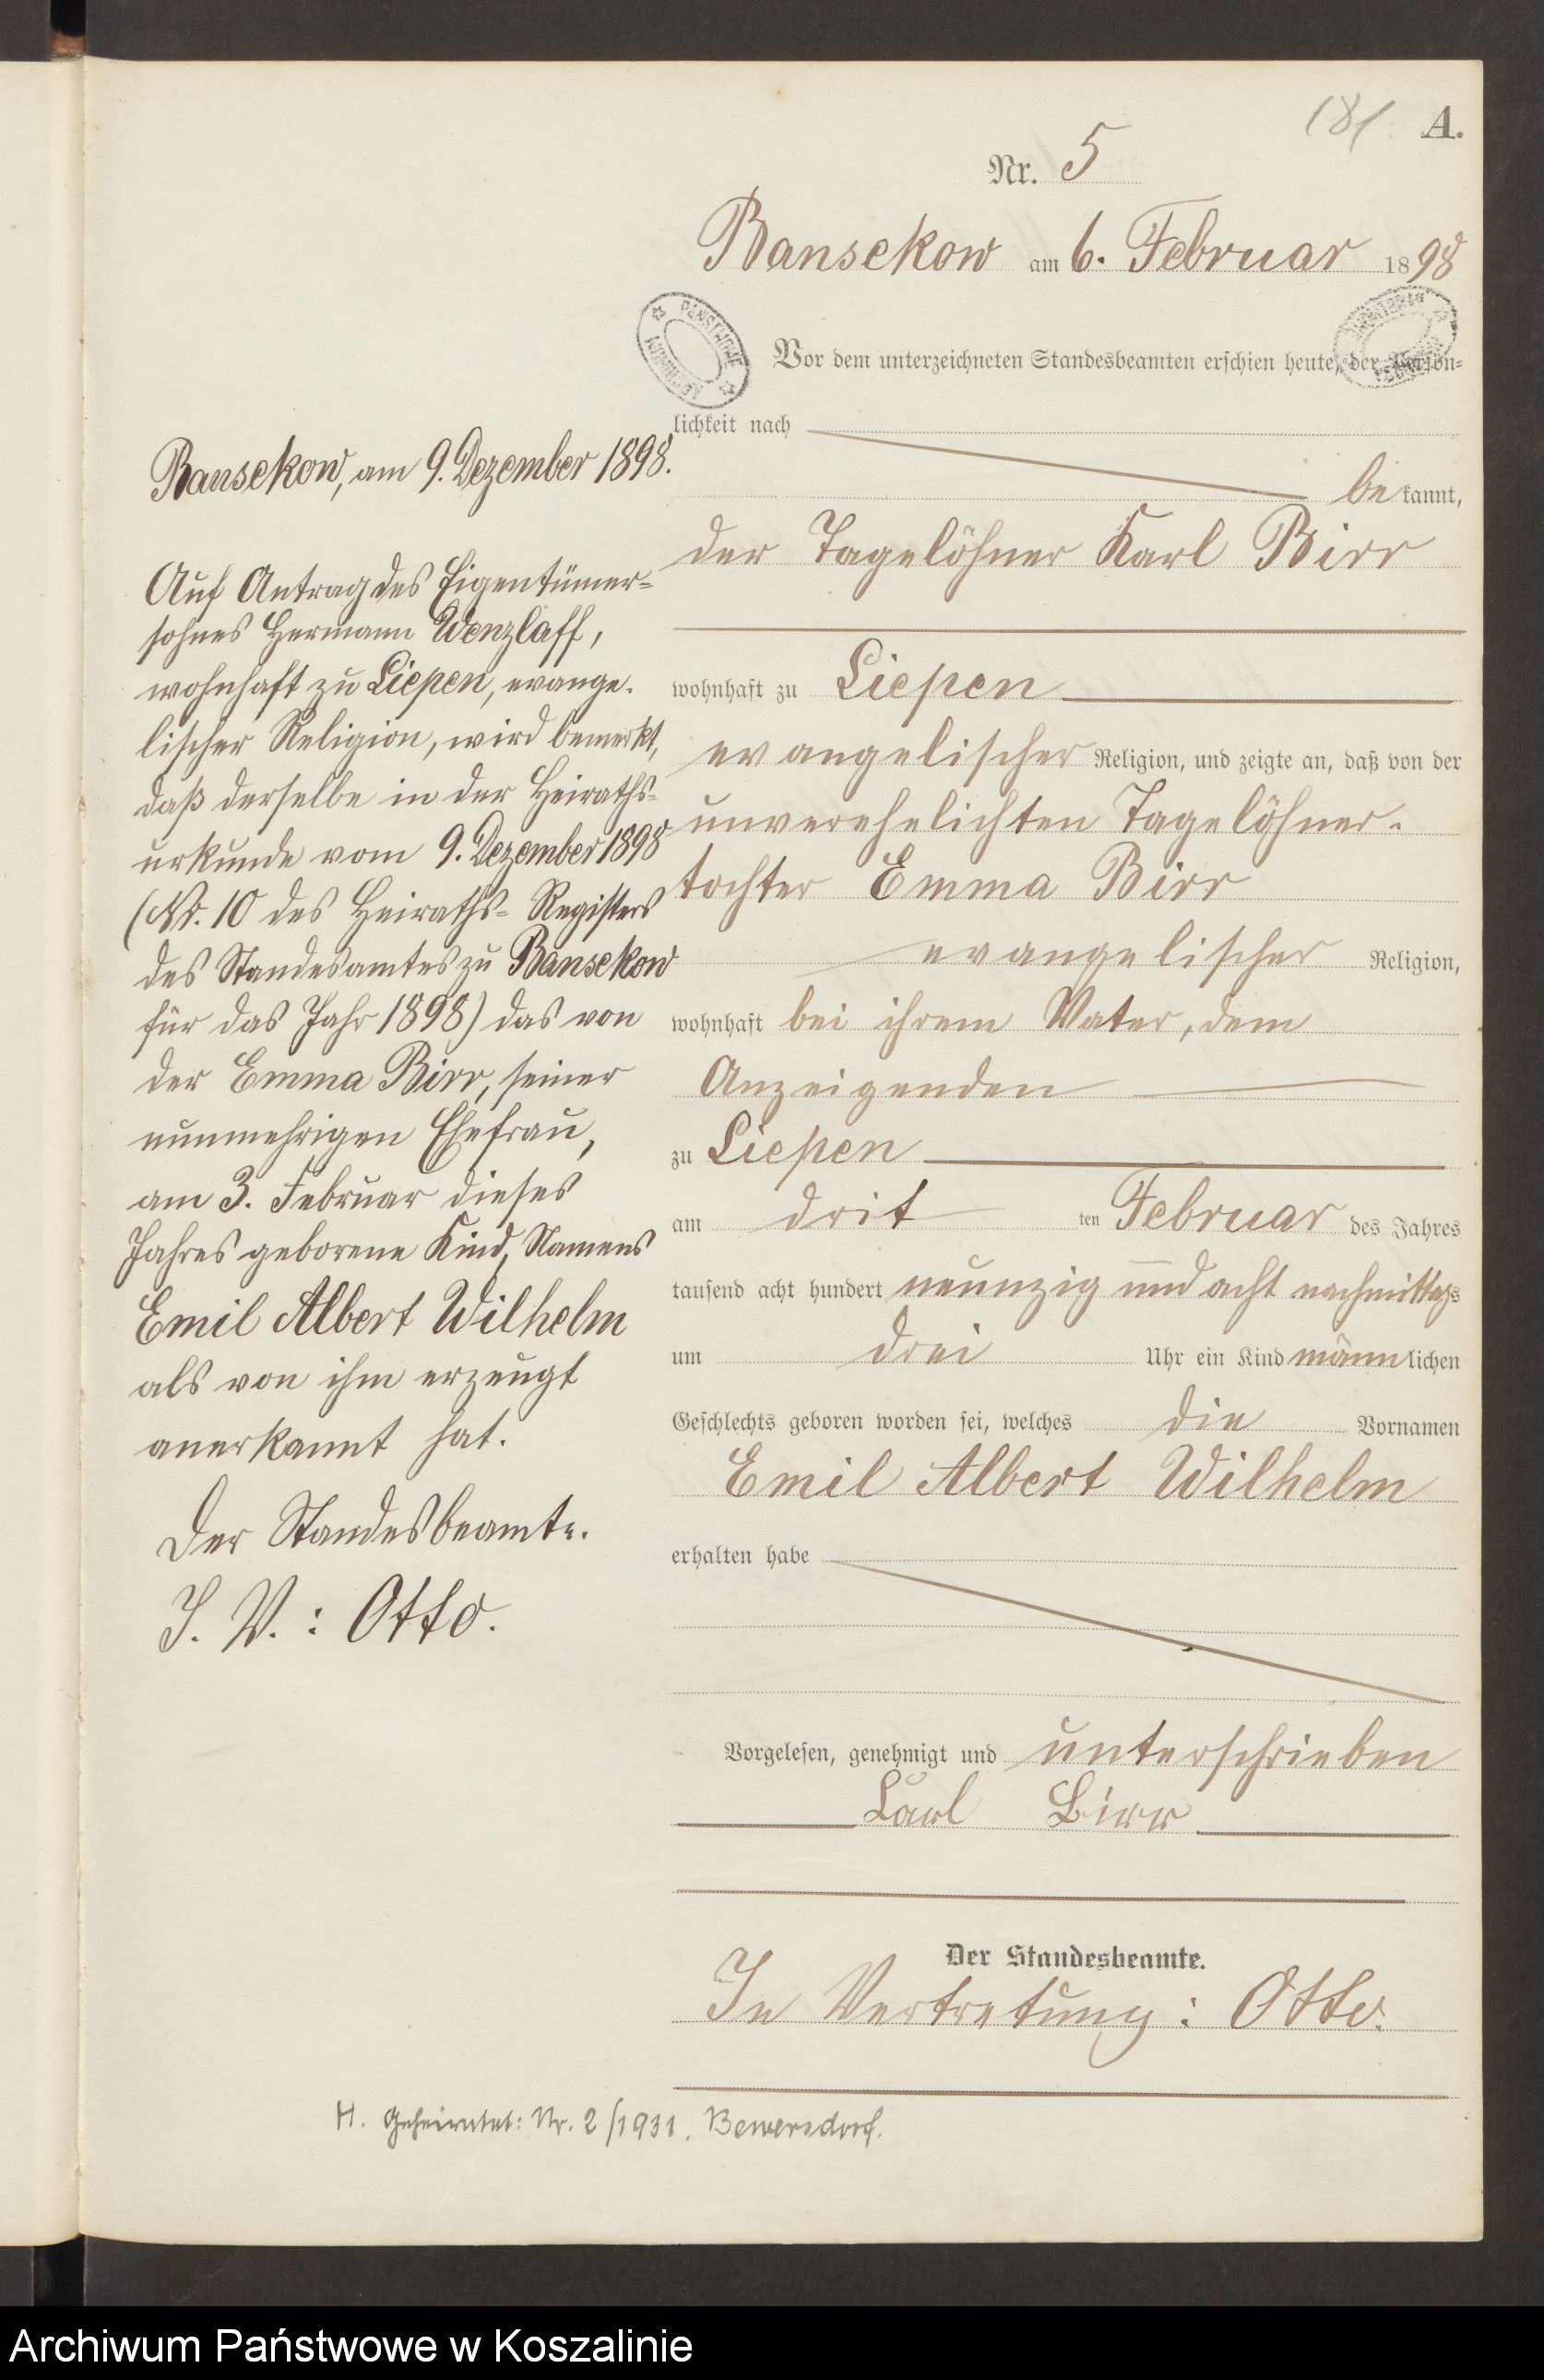 181 A.
Nr. 5
Bansekow am 6. Februar 1898
Vor dem unterzeichneten Standesbeamten erschien heute, der Persön-
lichkeit nach
bekannt,
der Tagelöhner Karl Birr
wohnhaft zu Liepen
evangelischer Religion, und zeigte an, daß von der
unverehelichten Tagelöhner-
tochter Emma Birr
evangelischer Religion,
wohnhaft bei ihrem Vater, dem
Anzeigenden
zu Liepen
am drit ten Februar des Jahres
tausend acht hundert neunzig und acht nachmittags
um drei Uhr ein Kind männlichen
Geschlechts geboren worden sei, welches die Vornamen
Emil Albert Wilhelm
erhalten habe
Vorgelesen, genehmigt und unterschrieben
Karl Birr
Der Standesbeamte.
In Vertretung: Otto.
Bansekow, am 9. Dezember 1898.
Auf Antrag des Eigentümer-
sohnes Hermann Wenzlaff,
wohnhaft zu Liepen, evange-
lischer Religion, wird bemerkt,
daß derselbe in der Heiraths-
urkunde vom 9. Dezember 1898
(Nr. 10 des Heiraths-Registers
des Standesamtes zu Bansekow
für das Jahr 1898) das von
der Emma Birr, seiner
nunmehrigen Ehefrau,
am 3. Februar dieses
Jahres geborene Kind, Namens
Emil Albert Wilhelm
als von ihm erzeugt
anerkannt hat.
Der Standesbeamte.
I. V.: Otto.
H. Geheiratet: Nr. 2/1931. Bewersdorf.
Archiwum Państwowe w Koszalinie